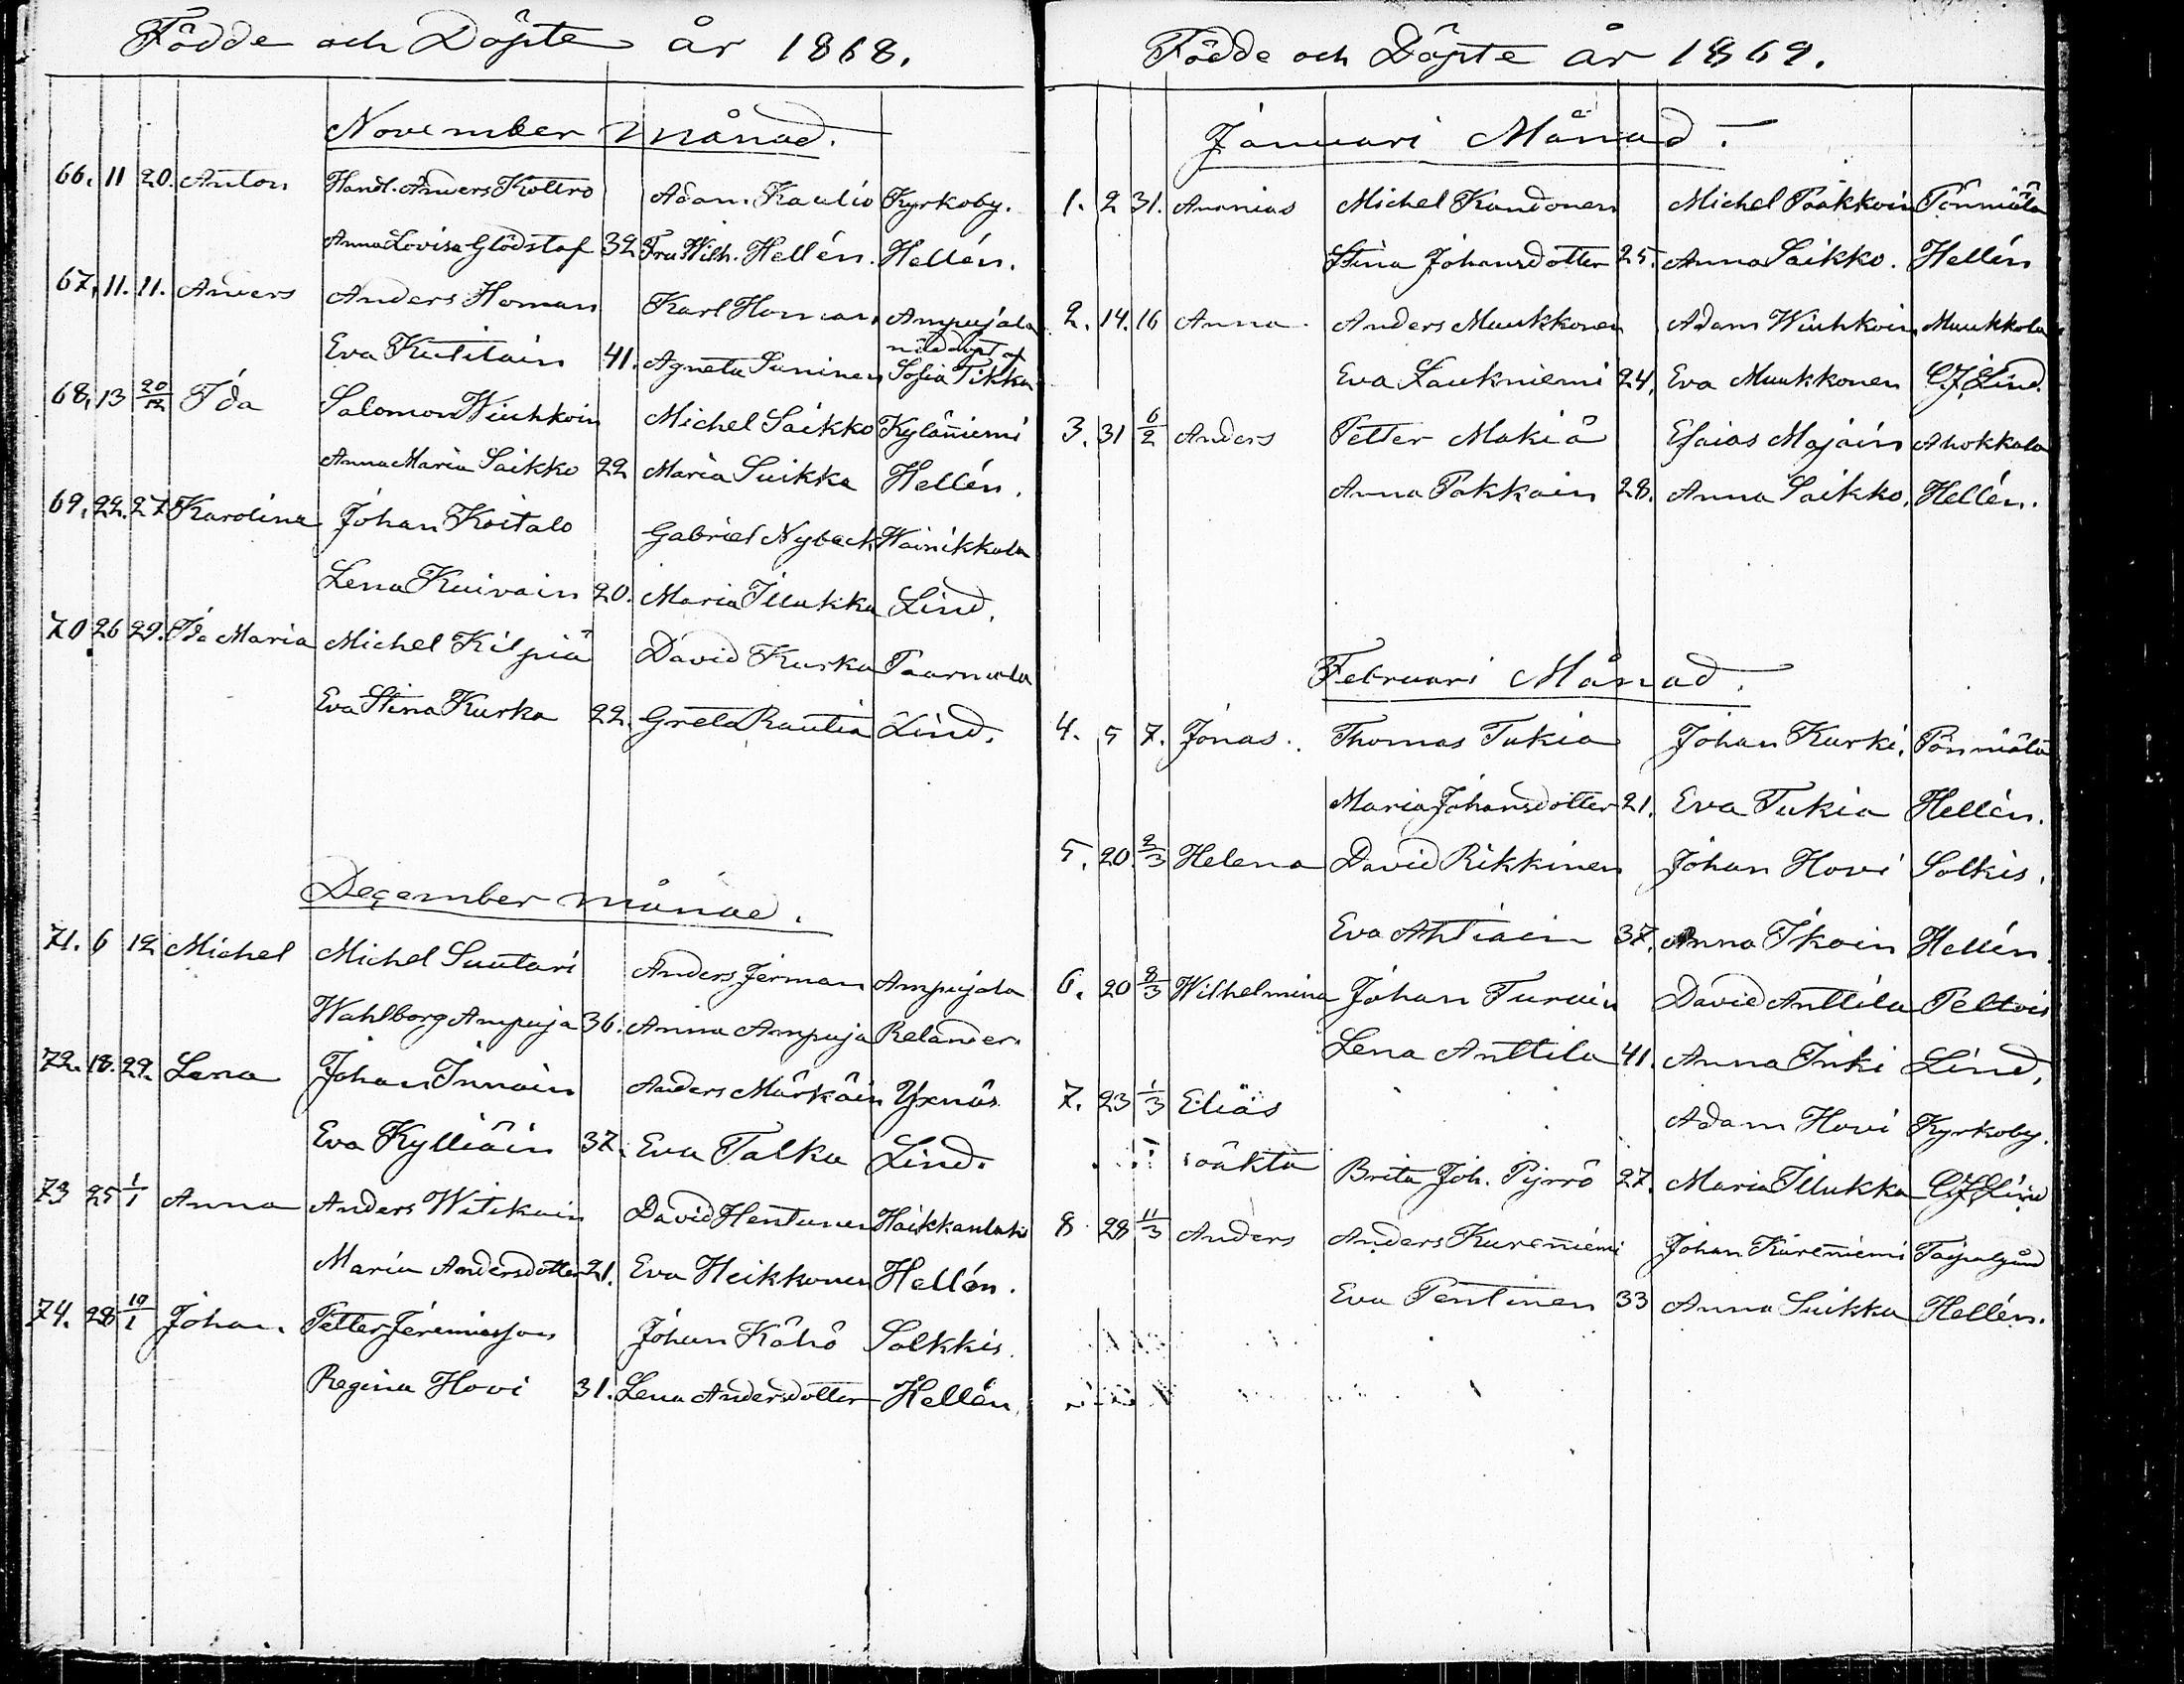 Födde och Döpte år 1868.
November månad.
66. 11 20. Anton Handl. Anders Kottro Adam Kaulio Kyrkoby.
Anna Lovisa Glödstaf 32 Fru Wilh. Hellén. Hellén.
67. 11. 11. Anders Anders Homan Karl Homan Ampujala
nöddöpt af
Eva Kutilain 41. Agneta Suninen Sofia Tikka
68. 13 20/12 Ida Salomon Wiuhkoin Michel Saikko Kyläniemi
Anna Maria Saikko 22 Maria Suikka Hellén.
69. 22. 27 Karolina Johan Koitalo Gabriel Nyback Wainikkala
Lena Kuivain 20. Maria Illukka Lind.
70 26 29. Ida Maria Michel Kilpiä David Kurka Paarmala
Eva Stina Kurka 22. Greta Rautia Lind.
December månad.
71. 6 12 Michel Michel Suutari Anders Jerman Ampujala
Wahlborg Ampuja 36. Anna Ampuja Relander.
72. 18. 29. Lena Johan Innain Anders Märkäin Yxnäs.
Eva Kylliäin 37. Eva Talka Lind.
73 25 1/1 Anna Anders Witikain David Hentunen Haikkanlaks
Maria Andersdotter 21. Eva Heikkonen Hellén.
74. 28 19/1 Johan. Petter Jeremiasson Johan Kähö Solkkis.
Regina Hovi 31. Lena Andersdotter Hellén.
Födde och Döpte år 1869.
Januari Månad.
1. 2 31. Ananias Michel Kandonen Michel Paakkoin Pönniälä
Stina Johansdotter 25. Anna Saikko. Hellén
2. 14. 16 Anna. Anders Muukkonen Adam Wiuhkoin Muukkola
Eva Laukniemi 24. Eva Muukkonen C. J. Lind.
3. 31 6/2 Anders Petter Makiä Esaias Majain Ahokkala
Anna Pakkain 28. Anna Saikko. Hellén.
Februari Månad.
4. 5 7. Jonas. Thomas Tukia Johan Kurki. Pönniälä
Maria Johansdotter 21. Eva Tukia Hellén.
5. 20. 2/3 Helena David Rikkinen Johan Hovi Solkis.
Eva Ahtiain 37. Anna Ikoin Hellén.
6. 20 8/3 Wilhelmina Johan Turuin David Anttila Peltois
Lena Anttila 41. Anna Inki Lind.
7. 23 1/3 Elias Adam Hovi Kyrkoby.
oäkta Brita Joh. Pyrrö 27. Maria Illukka C. J. Lind
8 28 11/3 Anders Anders Kureniemi Johan Kureniemi Taipalgård
Eva Pentinen 33 Anna Suikka Hellén.